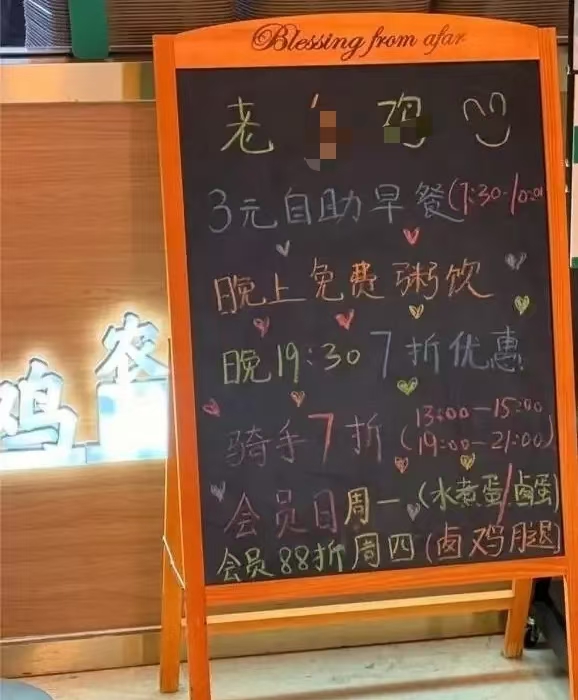 Blessing from afar
老 鸡
3元自助早餐(7:30-10:00
晚上免费粥饮
晚19:30 7折优惠
骑手7折(13:00-15:00
19:00-21:00)
会员日周一(水煮蛋/卤蛋)
会员88折周四(卤鸡腿)
农
鸡